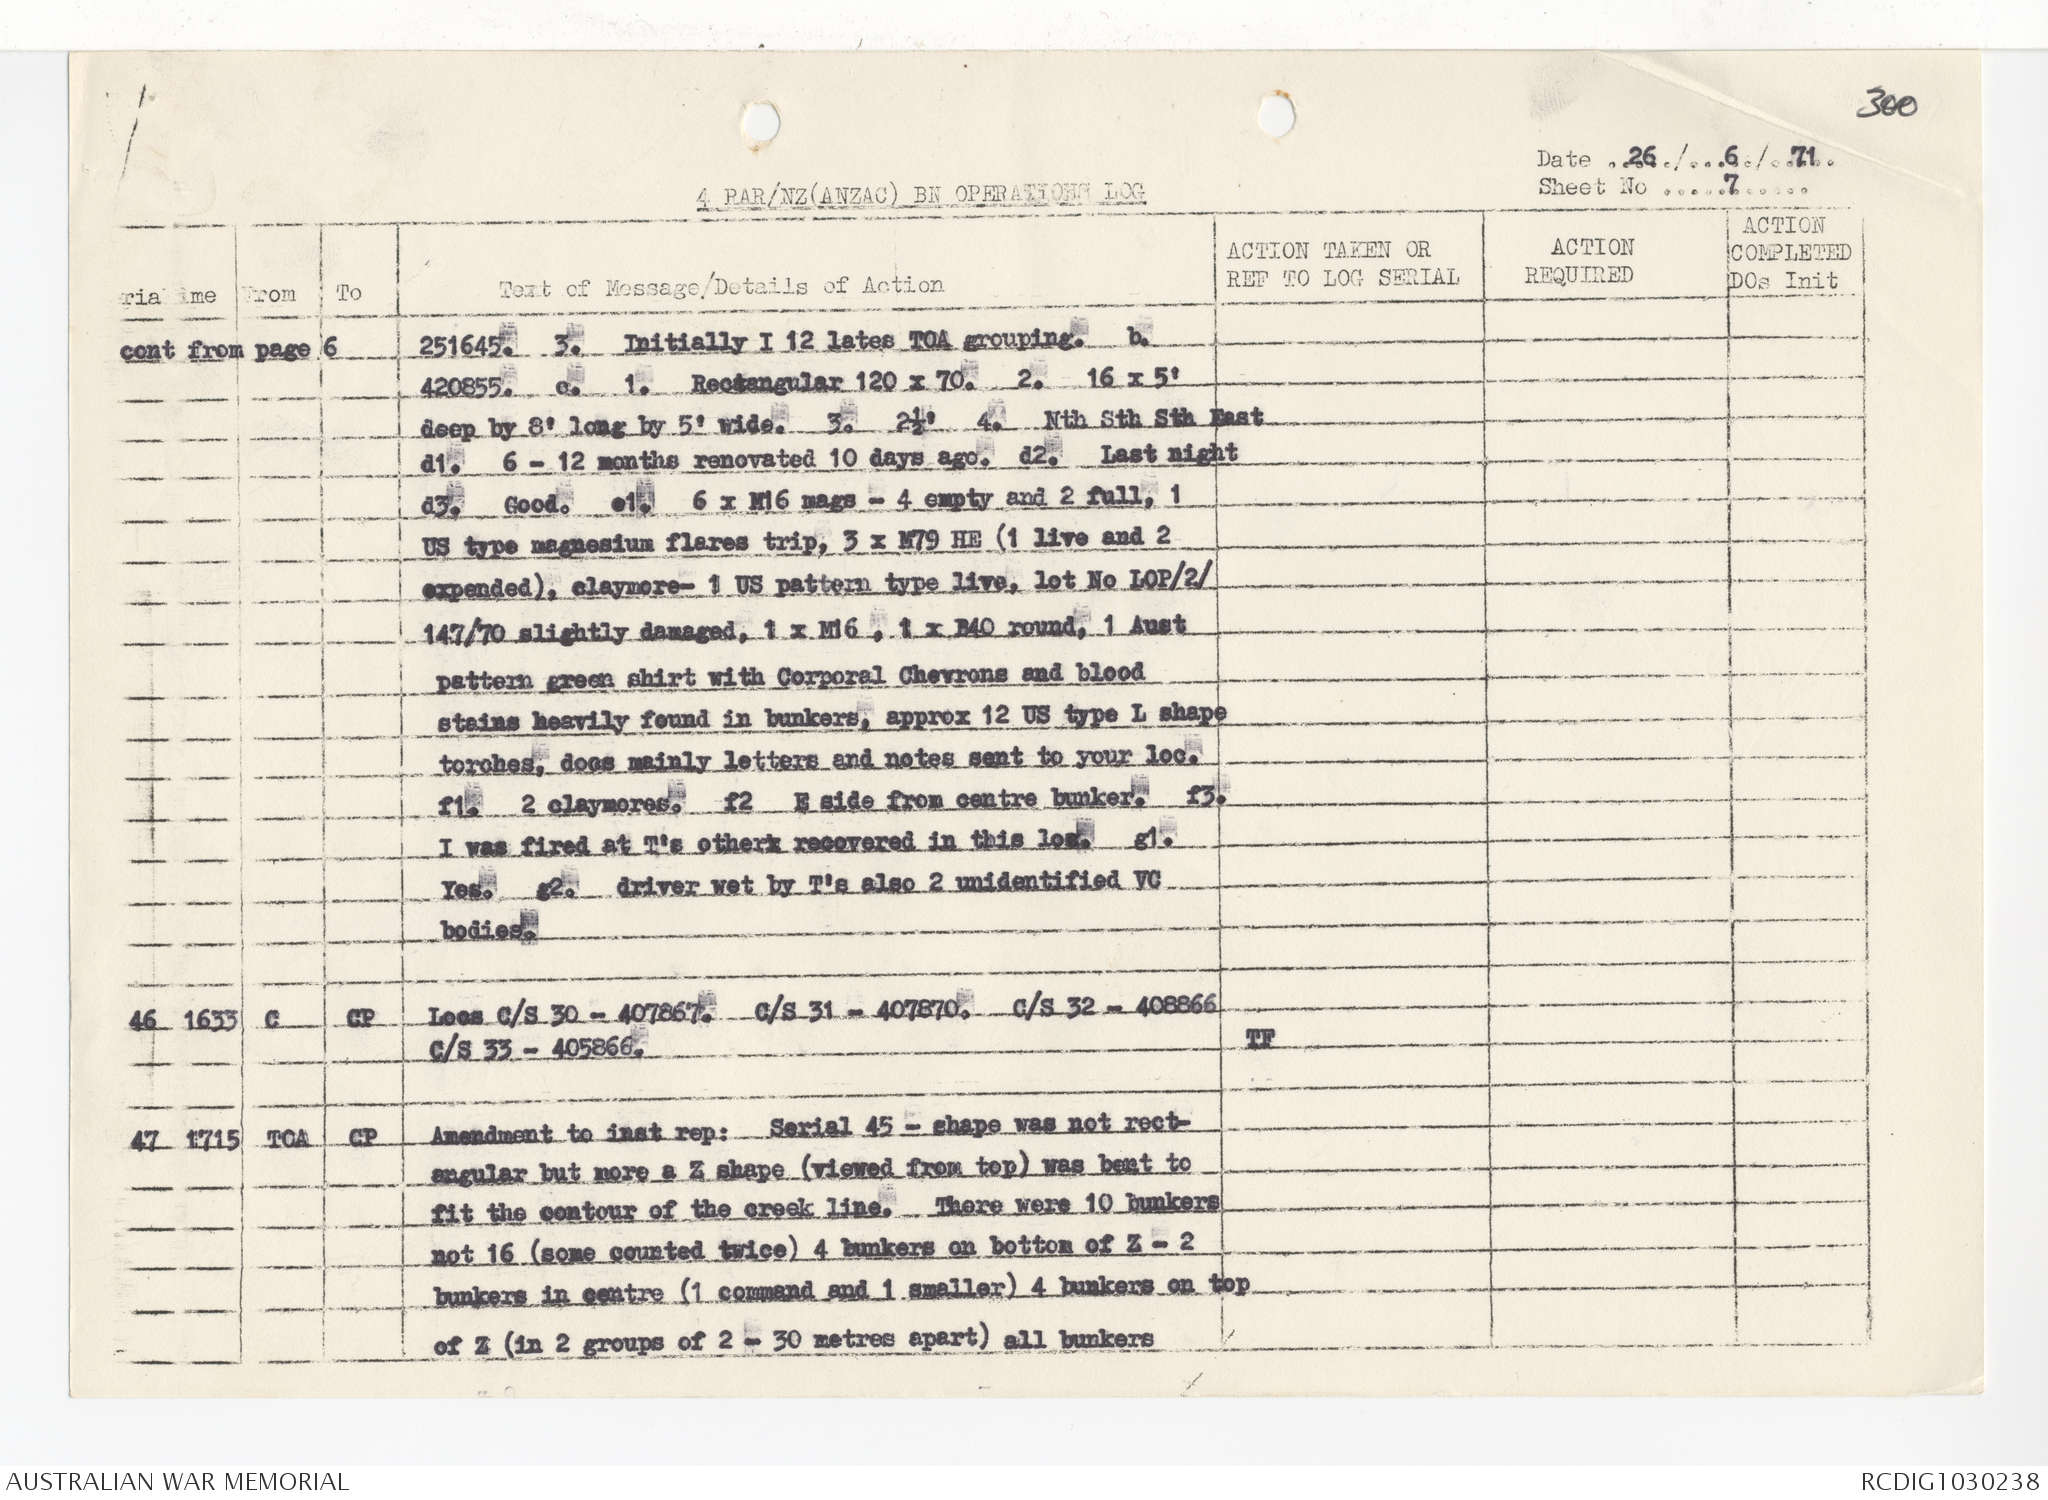 300
Date ..26../...6../..71..
Sheet No .....7......
4 RAR/NZ(ANZAC) BN OPERATIONS LOG
ria ime From To Text of Message/Details of Action ACTION TAKEN OR REF TO LOG SERIAL ACTION REQUIRED ACTION COMPLETED DOs Init
cont from page 6 251645. 3. Initially I 12 lates TOA grouping. b.
420855. c. 1. Rectangular 120 x 70. 2. 16 x 5'
deep by 8' long by 5' wide. 3. 2½' 4. Nth Sth Sth East
d1. 6 - 12 months renovated 10 days ago. d2. Last night
d3. Good. e1. 6 x M16 mags - 4 empty and 2 full, 1
US type magnesium flares trip, 3 x M79 HE (1 live and 2
expended), claymore- 1 US pattern type live, lot No LOP/2/
147/70 slightly damaged, 1 x M16 , 1 x B40 round, 1 Aust
pattern green shirt with Corporal Chevrons and blood
stains heavily found in bunkers, approx 12 US type L shape
torches, docs mainly letters and notes sent to your loc.
f1. 2 claymores. f2 E side from centre bunker. f3.
I was fired at T's other recovered in this loc. g1.
Yes. g2. driver wet by T's also 2 unidentified VC
bodies.
46 1633 C CP Locs C/S 30 - 407867. C/S 31 - 407870. C/S 32 - 408866
C/S 33 - 405866. TF
47 1715 TOA CP Amendment to inst rep: Serial 45 - shape was not rect-
angular but more a Z shape (viewed from top) was bent to
fit the contour of the creek line. There were 10 bunkers
not 16 (some counted twice) 4 bunkers on bottom of Z - 2
bunkers in centre (1 command and 1 smaller) 4 bunkers on top
of Z (in 2 groups of 2 - 30 metres apart) all bunkers
AUSTRALIAN WAR MEMORIAL
RCDIG1030238